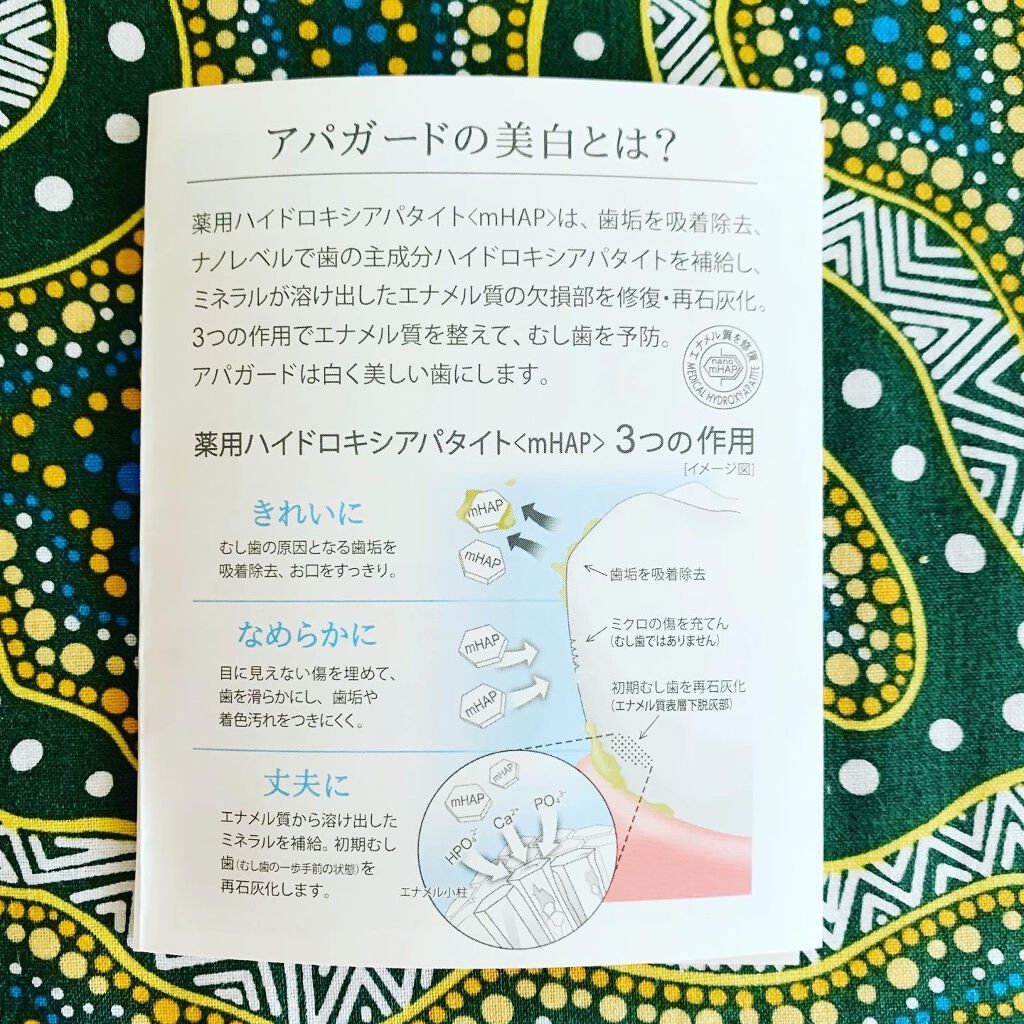 アパガードの美白とは?
薬用ハイドロキシアパタイト<mHAP>は、歯垢を吸着除去、
ナノレベルで歯の主成分ハイドロキシアパタイトを補給し、
ミネラルが溶け出したエナメル質の欠損部を修復・再石灰化。
3つの作用でエナメル質を整えて、むし歯を予防。
アパガードは白く美しい歯にします。
エナメル質を修復
nano
mHAP
MEDICAL HYDROXYAPATITE
薬用ハイドロキシアパタイト<mHAP> 3つの作用
[イメージ図]
きれいに
むし歯の原因となる歯垢を
吸着除去、お口をすっきり。
mHAP
mHAP
歯垢を吸着除去
なめらかに
目に見えない傷を埋めて、
歯を滑らかにし、歯垢や
着色汚れをつきにくく。
mHAP
mHAP
ミクロの傷を充てん
(むし歯ではありません)
初期むし歯を再石灰化
(エナメル質表層下脱灰部)
丈夫に
エナメル質から溶け出した
ミネラルを補給。初期むし
歯(むし歯の一歩手前の状態)を
再石灰化します。
mHAP
mHAP
HPO₄²⁻
Ca²⁺
PO₄³⁻
エナメル小柱